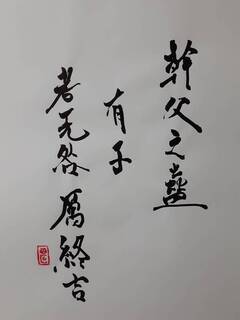 幹父之蠱
有子
考无咎 厲終吉